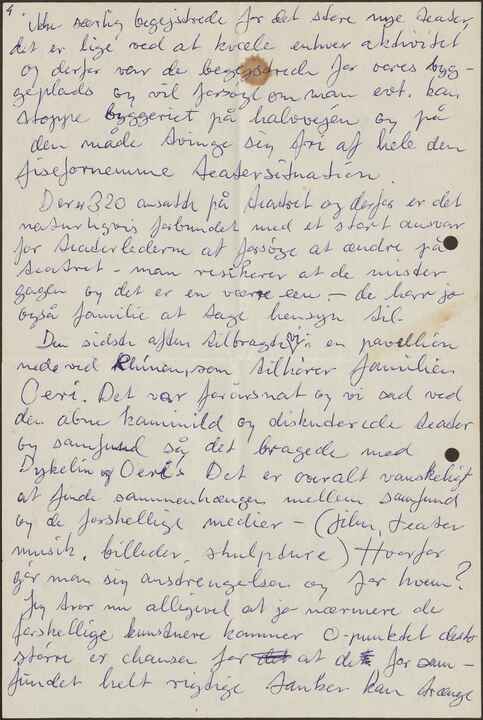 4
ikke særlig begejstrede for det store nye teater,
det er lige ved at kvæle enhver aktivitet
og derfor var de begejstrede for vores byg-
geplads og vil forsøge om man evt. kan
stoppe byggeriet på halvvejen og på
den måde tvinge sig fri af hele den
fisefornemme teatersituation.
Der er 320 ansatte på teatret og derfor er det
naturligvis forbundet med et stort ansvar
for teaterlederne at forsøge at ændre på
teatret - man risikerer at de mister
gagen og det er en værre een - de har jo
også familie at tage hensyn til.
Den sidste aften tilbragte vi i en pavellion
nede ved Rhinen, som tilhører familien
Oeri. Det var forårsnat og vi sad ved
den åbne kaminild og diskuterede teater
og samfund så det bragede med
Dykelin og Oeri's Det er overalt vanskeligt
at finde sammenhængen mellem samfund
og de forskellige medier - (film, teater
musik, billeder, skulpture) Hvorfor
gør man sig anstrengelsen og for hvem?
Jeg tror nu alligevel at jo nærmere de
forskellige kunstnere kommer 0-punktet desto
større er chansen for det at de for sam-
fundet helt rigtige tanker kan trænge